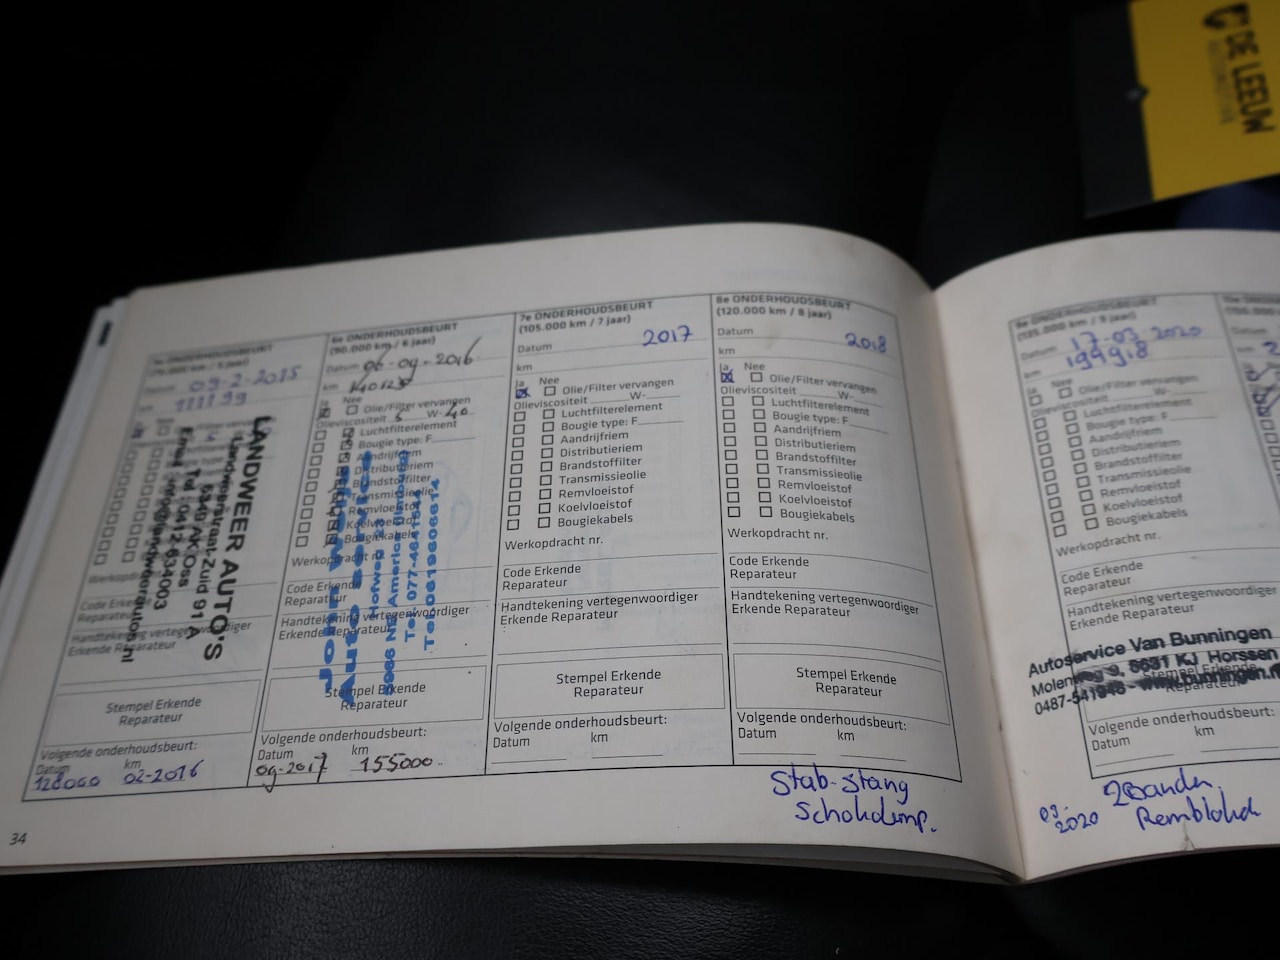 DE LEEUW
5e ONDERHOUDSBEURT
(75.000 km / 5 jaar)
Datum 09-2-2015
km 111199
LANDWEER AUTO'S
Landweerstraat-Zuid 91 A
5349 AK Oss
Tel.: 0412-634003
Werkopdracht
Code Erkende
Reparateur
Handtekening vertegenwoordiger
Erkende Reparateur
Stempel Erkende
Reparateur
Volgende onderhoudsbeurt:
Datum km
128000 02-2016
34
6e ONDERHOUDSBEURT
(90.000 km / 6 jaar)
Datum 06-09-2016
km 140120
Ja Nee
Olie/Filter vervangen
Olieviscositeit 5 W-40
Luchtfilterelement
Bougie type: F
Aandrijfriem
Distributieriem
Brandstoffilter
Transmissieolie
Remvloeistof
Koelvloeistof
Bougiekabels
Werkopdracht nr.
Auto Service
Hofweg
America
Code Erkende
Reparateur
Handtekening vertegenwoordiger
Erkende Reparateur
Stempel Erkende
Reparateur
Volgende onderhoudsbeurt:
Datum km
09-2017 155000
7e ONDERHOUDSBEURT
(105.000 km / 7 jaar)
Datum 2017
km
Ja Nee
Olie/Filter vervangen
Olieviscositeit W-
Luchtfilterelement
Bougie type: F
Aandrijfriem
Distributieriem
Brandstoffilter
Transmissieolie
Remvloeistof
Koelvloeistof
Bougiekabels
Werkopdracht nr.
Code Erkende
Reparateur
Handtekening vertegenwoordiger
Erkende Reparateur
Stempel Erkende
Reparateur
Volgende onderhoudsbeurt:
Datum km
8e ONDERHOUDSBEURT
(120.000 km / 8 jaar)
Datum 2018
km
Ja Nee
Olie/Filter vervangen
Olieviscositeit W-
Luchtfilterelement
Bougie type: F
Aandrijfriem
Distributieriem
Brandstoffilter
Transmissieolie
Remvloeistof
Koelvloeistof
Bougiekabels
Werkopdracht nr.
Code Erkende
Reparateur
Handtekening vertegenwoordiger
Erkende Reparateur
Stempel Erkende
Reparateur
Volgende onderhoudsbeurt:
Datum km
Stab-Stang
Schokdemp.
9e ONDERHOUDSBEURT
(135.000 km / 9 jaar)
Datum 17-03-2020
km 199918
Ja Nee
Olie/Filter vervangen
Olieviscositeit W-
Luchtfilterelement
Bougie type: F
Aandrijfriem
Distributieriem
Brandstoffilter
Transmissieolie
Remvloeistof
Koelvloeistof
Bougiekabels
Werkopdracht nr.
Code Erkende
Reparateur
Handtekening vertegenwoordiger
Erkende Reparateur
Autoservice Van Bunningen
Molenweg 9, 6631 KJ Horssen
0487-541948 - www.bunningen.n
Volgende onderhoudsbeurt:
Datum km
03-2020 2Banden
Remblokken